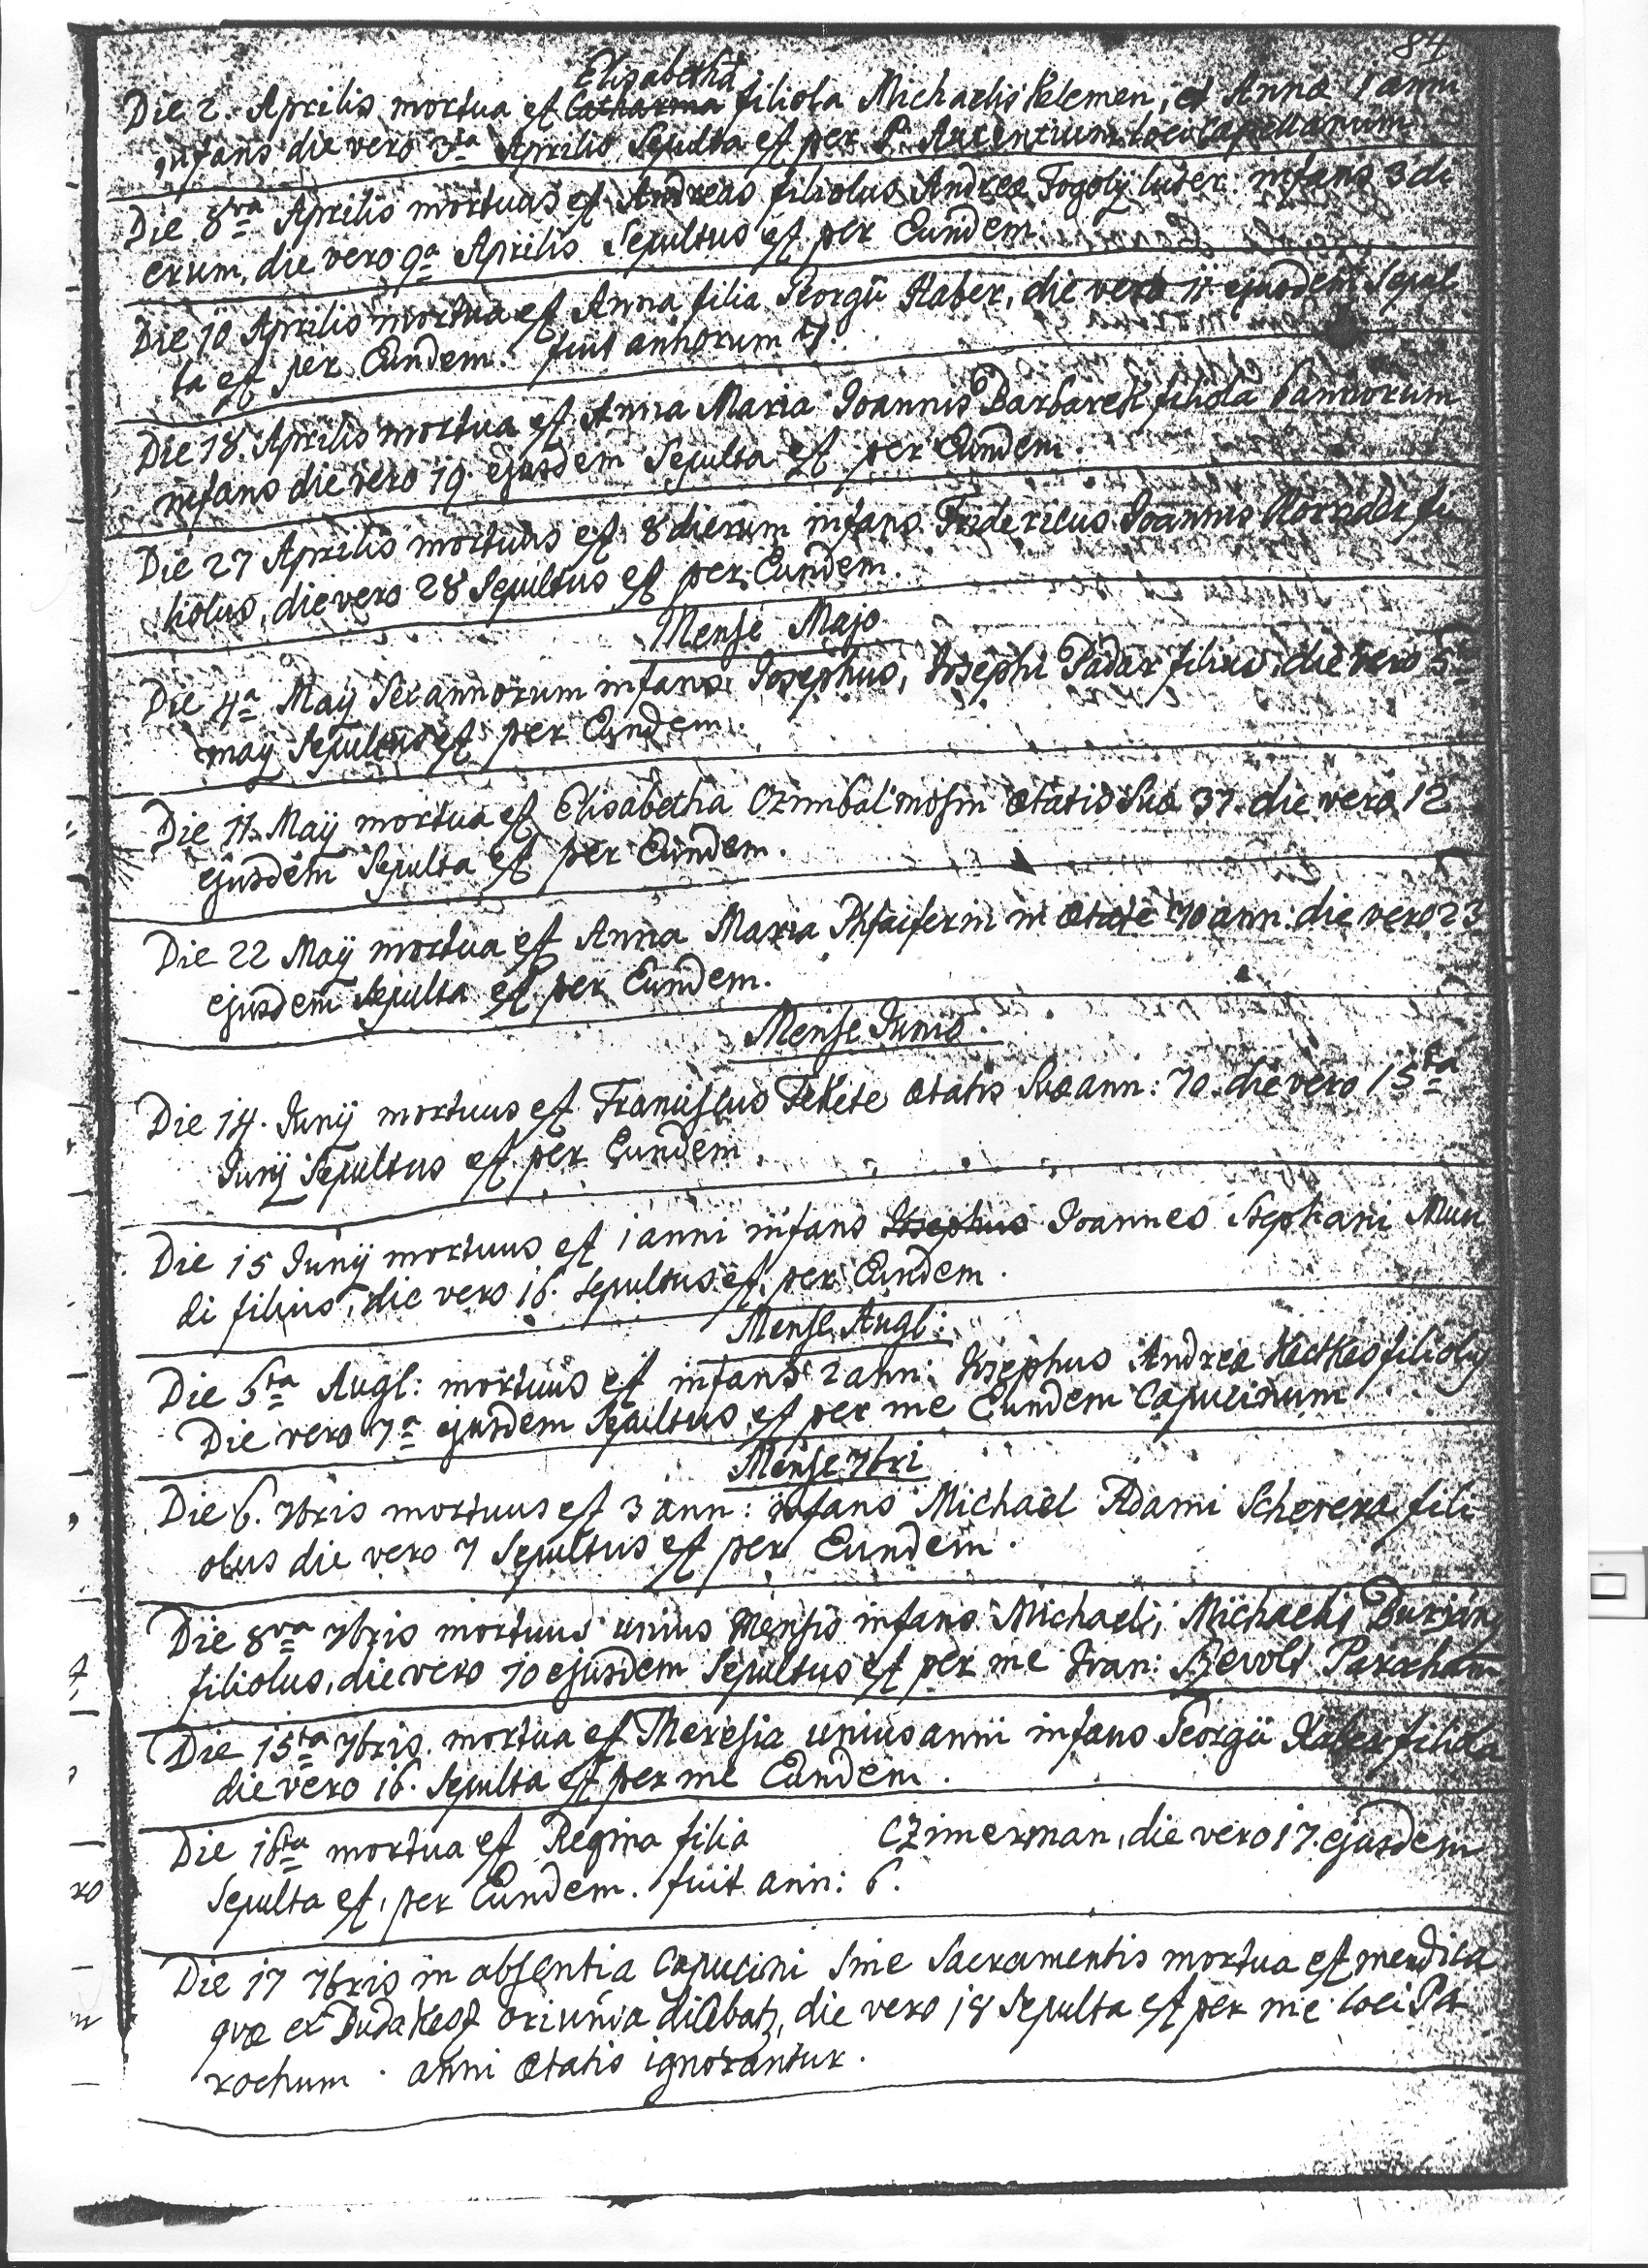 84
Elisabetha
Die 2. Aprilis mortua est Catharina filiola Michaelis Kelemen, et Annæ 1 anni
infans die vero 3tia Aprilis Sepulta est per P. loci Capellanum
Die 8va Aprilis mortuus est Andreas filiolus Andreæ Fogoly luter: infans 3 di
erum, die vero 9a Aprilis Sepultus est per Eundem
Die 10 Aprilis mortua est Anna filia Georgii Raber, die vero 11 ejusdem Sepul
ta est per Eundem. fuit annorum 7.
Die 18. Aprilis mortua est Anna Maria Joannis Barbarek filiola 6 annorum
infans die vero 19. ejusdem Sepulta est per Eundem.
Die 27 Aprilis mortuus est 8 dierum infans Fridericus Joannis fi
liolus, die vero 28 Sepultus est per Eundem.
Mense Majo
Die 4a Maÿ Sex annorum infans Josephus, Josephi Padar filius, die vero 5ta
maÿ Sepultus est per Eundem.
Die 11. Maÿ mortua est Elisabetha Czimbalmosin ætatis Suæ 37. die vero 12
ejusdem Sepulta est per Eundem.
Die 22 Maÿ mortua est Anna Maria Pfaiferin in ætate 70 ann: die vero 23
ejusdem Sepulta est per Eundem.
Mense Junio.
Die 14. Junÿ mortuus est Franciscus Fekete ætatis Suæ ann: 70. die vero 15ta
Junÿ Sepultus est per Eundem.
Die 15 Junÿ mortuus est 1 anni infans Josephus Joannes Stephani Mun
di filius, die vero 16. Sepultus est per Eundem.
Mense Augl:
Die 6ta Augl: mortuus est infans 2 ann: Josephus Andreæ Kecskes filioly
Die vero 7a ejusdem Sepultus est per me Eundem Capucinum
Mense 7bri
Die 6. 7bris mortuus est 3 ann: infans Michael Adami Scherera fili
olus die vero 7 Sepultus est per Eundem.
Die 8va 7bris mortuus unius Mensis infans Michael, Michaelis Burjan
filiolus, die vero 10 ejusdem Sepultus est per me Fran: Parochum
Die 15ta 7bris. mortua est Theresia unius anni infans Georgii Raber filiola
die vero 16. Sepulta est per me Eundem.
Die 16ta mortua est Regina filia Czimerman, die vero 17. ejusdem
Sepulta est, per Eundem. fuit ann: 6.
Die 17 7bris in absentia Capucini Sine Sacramentis mortua est mendica
quæ ex Budakesz oriunda, die vero 18 Sepulta est per me loci Pa
rochum. anni ætatis ignorantur.